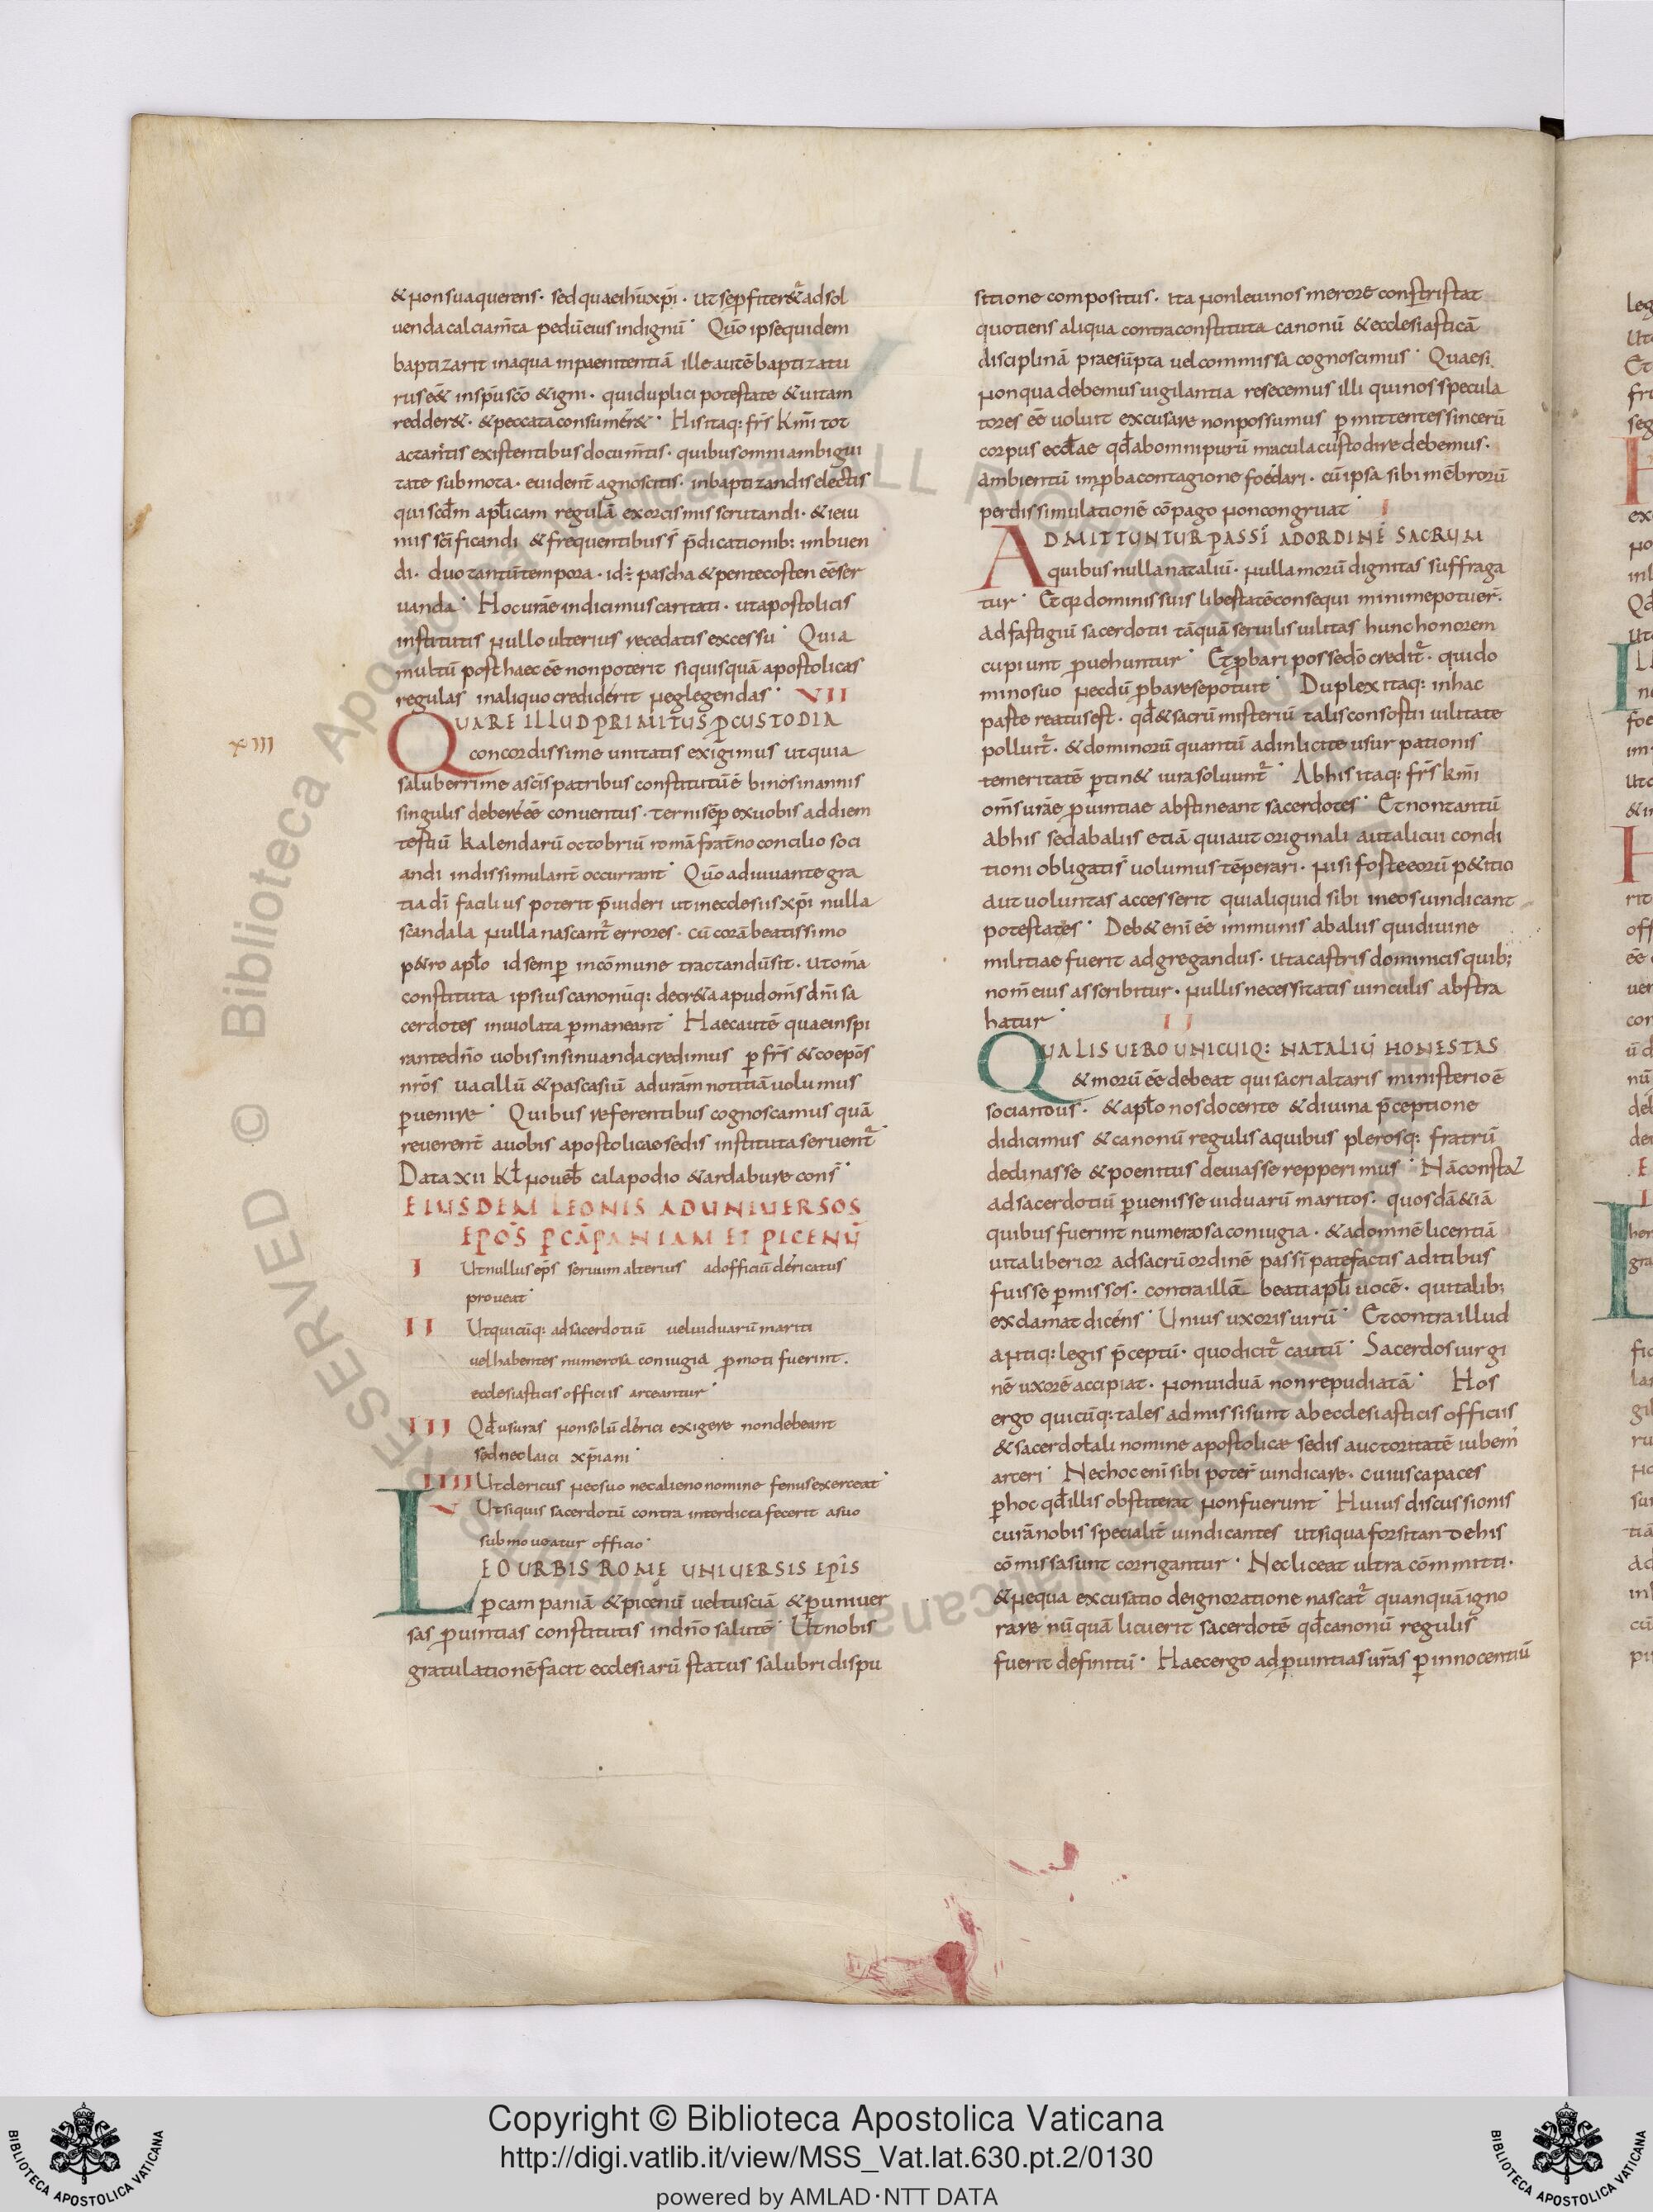 & non sua querens· sed quae ih̄u xp̄i· ut se pfiter&ur ad sol
uenda calciam̄ta pedū eius indignū· Quō ipse quidem
baptizarit in aqua in paenitentiā ille autē baptizatu
rus e& in sp̄u sc̄o & igni· qui duplici potestate & uitam
redder&· & peccata consumer&· His itaq: frs̄ km̄i tot
ac tantis existentibus docum̄tis· quibus omni ambigui
tate submota· euident̄ agnoscitis· in baptizandis electis
qui scd̄m apl̄icam regulā exorcismis scrutandi· & ieiu
niis sc̄ificandi & frequentibus s̄ p̄dicationib: imbuen
di· duo tantū tempora· id ÷ pascha & pentecosten eē ser
uanda· Hoc urāe indicimus caritati· ut apostolicis
institutis nullo ulterius recedatis excessu· Quia
multū post haec eē non poterit si quisquā apostolicas
regulas in aliquo crediderit neglegendas· VII
QUARE ILLUD PRIMITUS P CUSTODIA
xIII
concordissime unitatis exigimus ut quia
saluberrime a sc̄is patribus constitutū ē binos in annis
singulis debere eē conuentus· terni sēp ex uobis ad diem
tertiū kalendarū octobriū romā frat̄no concilio soci
andi indissimulant̄ occurrant· Quō adiuuante gra
tia dī facilius poterit p̄uideri ut in ecclesiis xp̄i nulla
scandala nulla nascant̄ errores· cū corā beatissimo
p&ro apl̄o id semp in cōmune tractandū sit· ut om̄ia
constituta ipsius canonūq: decr&a apud om̄s dn̄i sa
cerdotes inuiolata pmaneant· Haec autē quae inspi
rante dn̄o uobis insinuanda credimus p frs̄ & coepōs
nrōs uacillū & pascasiū ad uram̄ notitiā uolumus
puenire· Quibus referentibus cognoscamus quā
reuerent̄ a uobis apostolicae sedis instituta seruent̄·
Data xii kl̄ nouēb̄ calapodio & ardabure cons̄·
EIUSDEM LEONIS AD UNIUERSOS
EPŌS P CĀPANIAM ET PICENŪ
I Ut nullus ep̄s seruum alterius ad officiū clericatus
proueat·
II Ut quicūq: ad sacerdotiū uel uiduarū mariti
uel habentes numerosa coniugia pmoti fuerint.
ecclesiasticis officiis arceantur·
III Qd̄ usuras non solū clerici exigere non debeant
sed nec laici xp̄iani·
IIII Ut clericus nec suo nec alieno nomine fenus exerceat·
V Ut si quis sacerdotū contra interdicta fecerit a suo
submoueatur officio·
LEO URBIS ROME UNIUERSIS EPĪS
p campaniā & picenū uel tusciā & p uniuer
sas puintias constitutis in dn̄o salutē· Ut nobis
gratulationē facit ecclesiarū status salubri dispu
sitione compositus· ita non leui nos merore constristat
quotiens aliqua contra constituta canonū & ecclesiasticā
disciplinā praesūpta uel commissa cognoscimus· Quae si
non qua debemus uigilantia resecemus illi qui nos specula
tores eē uoluit excusare non possumus pmittentes sincerū
corpus eccl̄ae qd̄ ab omni purū macula custodire debemus·
ambientū imp̱ba contagione foedari· cū ipsa sibi mēbrorū
per dissimulationē cōpago non congruat I
ADMITTUNTUR PASSĪ AD ORDINĒ SACRUM
quibus nulla nataliū· nulla morū dignitas suffraga
tur· Et qr dominis suis libertatē consequi minime potuer̄·
ad fastigiū sacerdotii tāquā seruilis uilitas hunc honorem
cupiunt puehuntur· Et pbari pos se dō credit̄· qui do
mino suo necdū pbare se potuit· Duplex itaq: in hac
parte reatus est· qd̄ & sacrū misteriū talis consortii uilitate
polluit̄· & dominorū quantū ad inlicite usurpationis
temeritatē ptin& iura soluunt̄· Ab his itaq: frs̄ km̄i
om̄s urāe puintiae abstineant sacerdotes· Et non tantū
ab his sed ab aliis etiā qui aut originali aut alicui condi
tioni obligati s̄ uolumus tēperari· nisi forte eorū p&itio
aut uoluntas accesserit qui aliquid sibi in eos uindicant
potestates· Deb& enī eē immunis ab aliis qui diuine
militiae fuerit adgregandus· ut a castris dominicis quib;
nom̄ eius asscribitur· nullis necessitatis uinculis abstra
hatur· II
QUALIS UERO UNICUIQ: NATALIŪ HONESTAS
& morū eē debeat qui sacri altaris ministerio ē
sociandus· & apl̄o nos docente & diuina p̄ceptione
didicimus & canonū regulis a quibus plerosq: fratrū
declinasse & poenitus deuiasse repperimus· Nā constat
ad sacerdotiū puenisse uiduarū maritos· quosdā &iā
quibus fuerint numerosa coniugia· & ad omnē licentiā
uita liberior ad sacrū ordinē passī patefactis aditibus
fuisse pmissos· contra illā beati apl̄i uocē· qui talib;
exclamat dicens· Unius uxoris uirū· Et contra illud
antiq: legis p̄ceptū· quo dicit̄ cautū· Sacerdos uirgi
nē uxorē accipiat· non uiduā non repudiatā· Hos
ergo quicūq: tales admissi sunt ab ecclesiasticis officiis
& sacerdotali nomine apostolicae sedis auctoritatē iubem̄
arceri· Nec hoc enī sibi poter̄ uindicare· cuius capaces
p hoc qd̄ illis obstiterat non fuerunt· Huius discussionis
curā nobis specialit̄ uindicantes ut si qua forsitan de his
cōmissa sunt corrigantur· Nec liceat ultra cōmmitti·
& nequa excusatio de ignoratione nascat̄ quanquā igno
rare nūquā licuerit sacerdotē qd̄ canonū regulis
fuerit definitū· Haec ergo ad puintias urās p innocentiū
Copyright © Biblioteca Apostolica Vaticana
http://digi.vatlib.it/view/MSS_Vat.lat.630.pt.2/0130
powered by AMLAD·NTT DATA
BIBLIOTECA APOSTOLICA VATICANA
BIBLIOTECA APOSTOLICA VATICANA